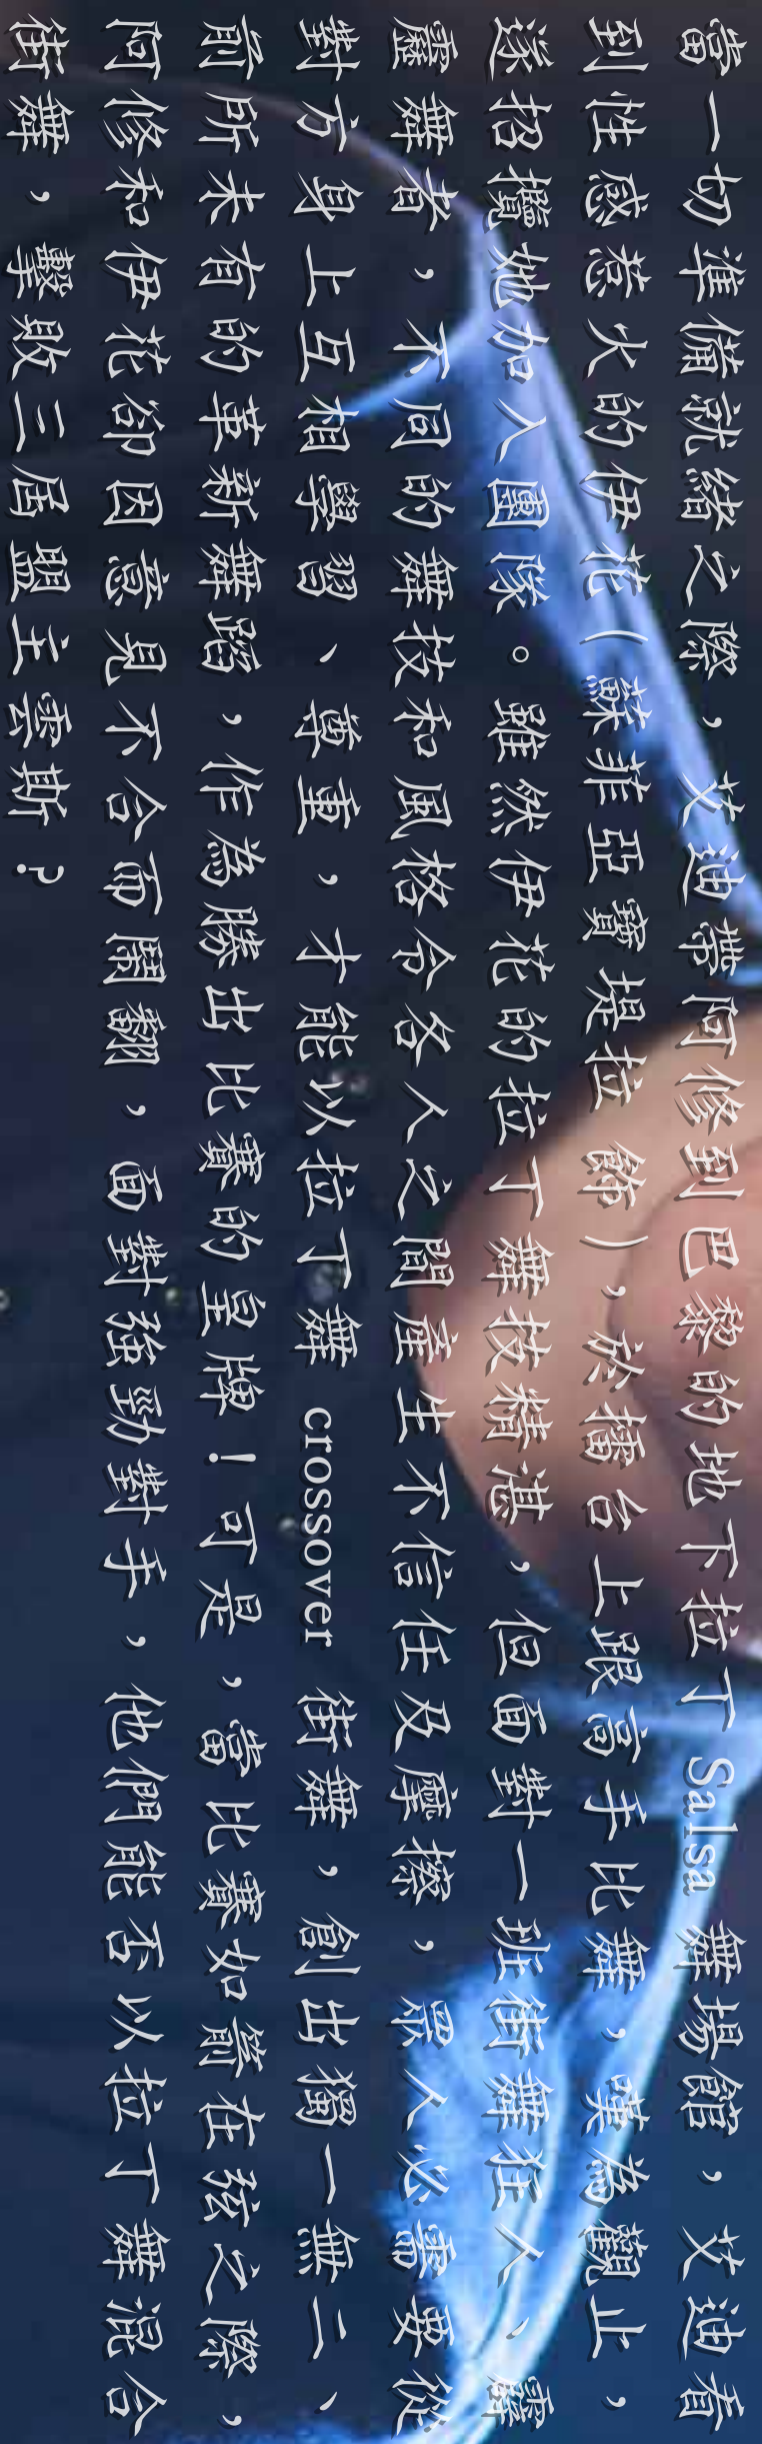 當一切準備就緒之際，艾迪帶阿修到巴黎的地下拉丁 Salsa 舞場館，艾迪看
到性感惹火的伊花（蘇菲亞寶堤拉 飾），於擂台上跟高手比舞，嘆為觀止，
遂招攬她加入團隊。雖然伊花的拉丁舞技精湛，但面對一班街舞狂人、霹
靂舞者，不同的舞技和風格令各人之間產生不信任及摩擦，眾人必需要從
對方身上互相學習、尊重，才能以拉丁舞 crossover 街舞，創出獨一無二、
前所未有的革新舞蹈，作為勝出比賽的皇牌！可是，當比賽如箭在弦之際，
阿修和伊花卻因意見不合而鬧翻，面對強勁對手，他們能否以拉丁舞混合
街舞，擊敗三屆盟主雲斯？